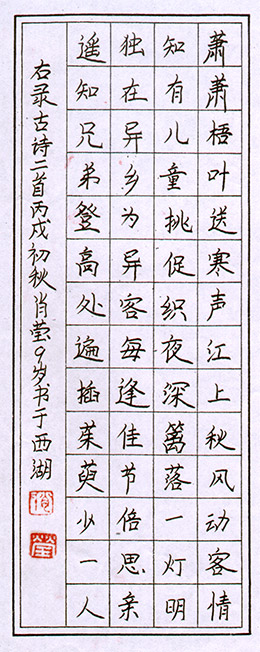 萧萧梧叶送寒声江上秋风动客情
知有儿童挑促织夜深篱落一灯明
独在异乡为异客每逢佳节倍思亲
遥知兄弟登高处遍插茱萸少一人
右录古诗二首丙戌初秋肖莹9岁书于西湖